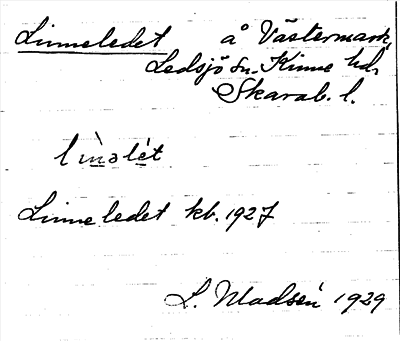 Linneledet å Västermark,
Ledsjö sn. Kinne hd,
Skarab. l.
lìnəlét
Linneledet kb. 1927
L. Madsén 1929